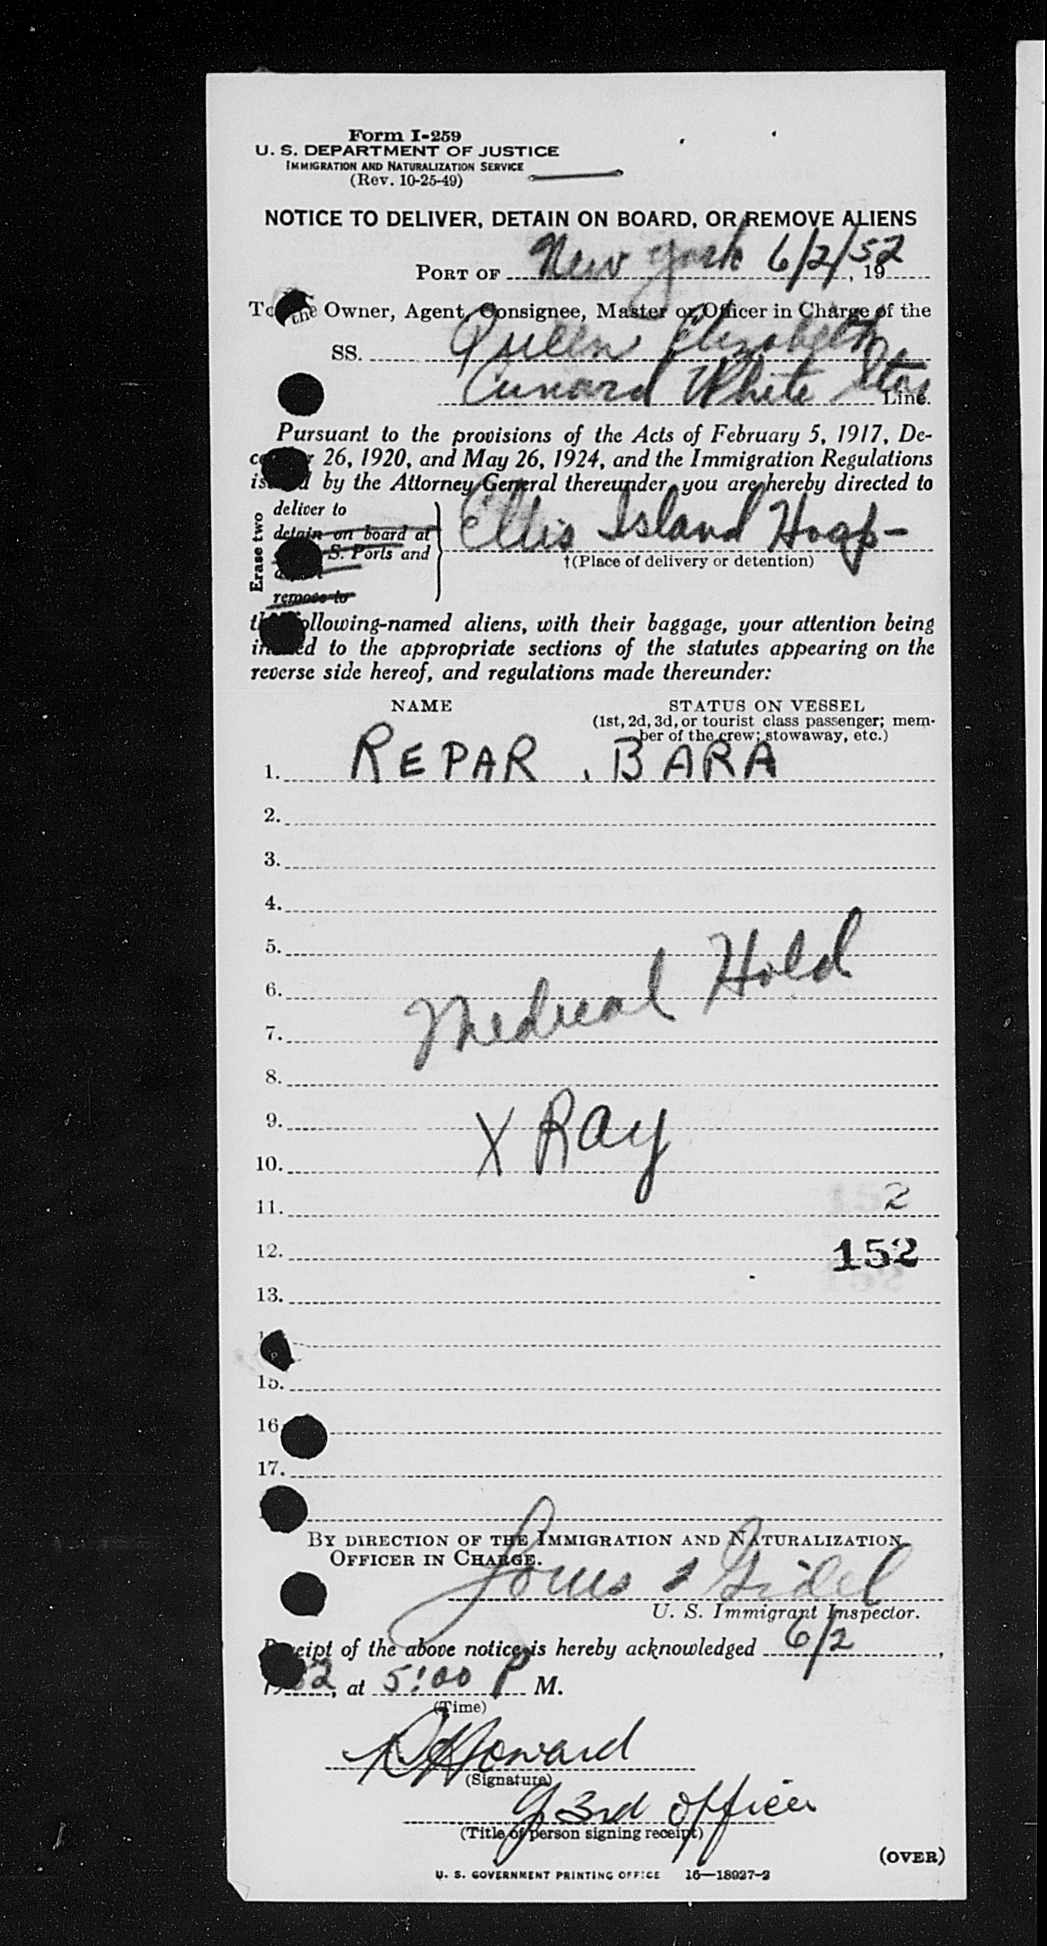 Form I-259
U. S. DEPARTMENT OF JUSTICE
IMMIGRATION AND NATURALIZATION SERVICE
(Rev. 10-25-49)
NOTICE TO DELIVER, DETAIN ON BOARD, OR REMOVE ALIENS
PORT OF New York 6/2/52, 19
To the Owner, Agent, Consignee, Master or Officer in Charge of the
SS. Queen Elizabeth
Cunard White Star Line.
Pursuant to the provisions of the Acts of February 5, 1917, De-
26, 1920, and May 26, 1924, and the Immigration Regulations
by the Attorney General thereunder, you are hereby directed to
Erase two
deliver to
detain on board at
S. Ports and
remove to
Ellis Island Hosp-
†(Place of delivery or detention)
following-named aliens, with their baggage, your attention being
to the appropriate sections of the statutes appearing on the
reverse side hereof, and regulations made thereunder:
NAME STATUS ON VESSEL
(1st, 2d, 3d, or tourist class passenger; mem-
ber of the crew; stowaway, etc.)
1. REPAR, BARA
2.
3.
4.
5.
6.
7.
Medical Hold
8.
9.
10.
X Ray
11. 2
12. 152
13.
15.
16
17.
BY DIRECTION OF THE IMMIGRATION AND NATURALIZATION
OFFICER IN CHARGE.
Louis Gidel
U. S. Immigrant Inspector.
Receipt of the above notice is hereby acknowledged 6/2,
1952, at 5:00 P M.
(Time)
Howard
(Signature)
3rd Officer
(Title of person signing receipt)
(OVER)
U. S. GOVERNMENT PRINTING OFFICE 16—18927-2